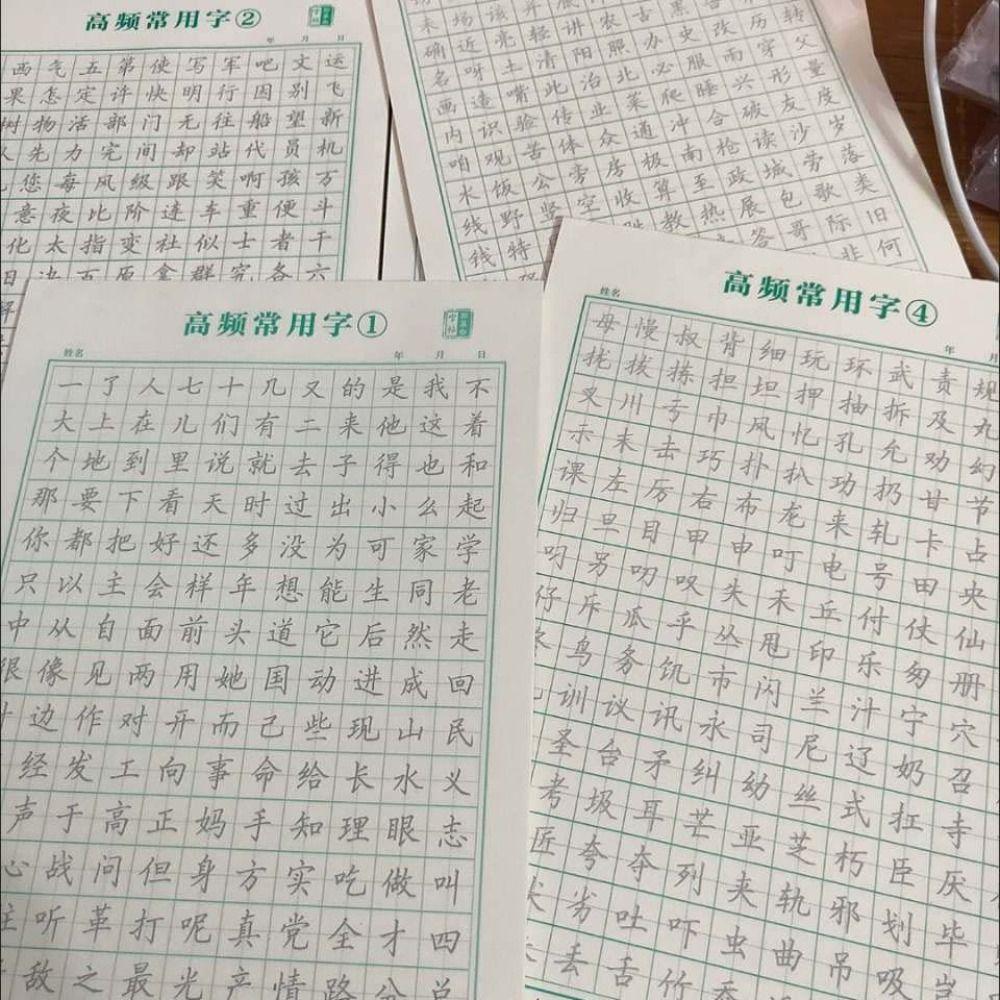 高频常用字②
年 月 日
西气五第使写军吧文运
果怎定许快明行因别飞
树物活部门无往船望新
先力完间却站代员机
您每风级跟笑啊孩万
意夜比阶连车重便斗
化太指变社似士者干
日决百原拿群究各六
来场该并底
确近亮轻讲农古黑
名呀土清阳照办史改历转
画造嘴此治北必服而穿父
内识验传业菜爬睡兴形量
咱观苦体众通冲合破友度
木饭公旁房极南枪读沙岁
线野坚空收算至政城劳落
钱特胜教热展包歌类
答哥际旧
非何
高频常用字①
姓名 年 月 日
一了人七十几又的是我不
大上在儿们有二来他这着
个地到里说就去子得也和
那要下看天时过出小么起
你都把好还多没为可家学
只以主会样年想能生同老
中从自面前头道它后然走
很像见两用她国动进成回
什边作对开而己些现山民
经发工向事命给长水义
声于高正妈手知理眼志
心战问但身方实吃做叫
住听革打呢真党全才四
敌之最光产情路分总
高频常用字④
姓名 年 月
母慢叔背细玩环武责规
拢拔拣担坦押抽拆及丸
叉川亏巾风忆孔允劝幻
示末击巧扑扒功扔甘节
课左厉右布龙来轧卡占
归旦目甲申叮电号田央
叼另叨叹失禾丘付仗仙
仔斥瓜乎丛甩印乐匆册
鸟务饥市闪兰汁宁穴
训议讯永司尼辽奶召
圣台矛纠幼丝式扛寺
考圾耳芒亚芝朽臣厌
匠夸夺列夹轨邪划毕
劣吐吓虫曲吊吸岂
丢舌竹